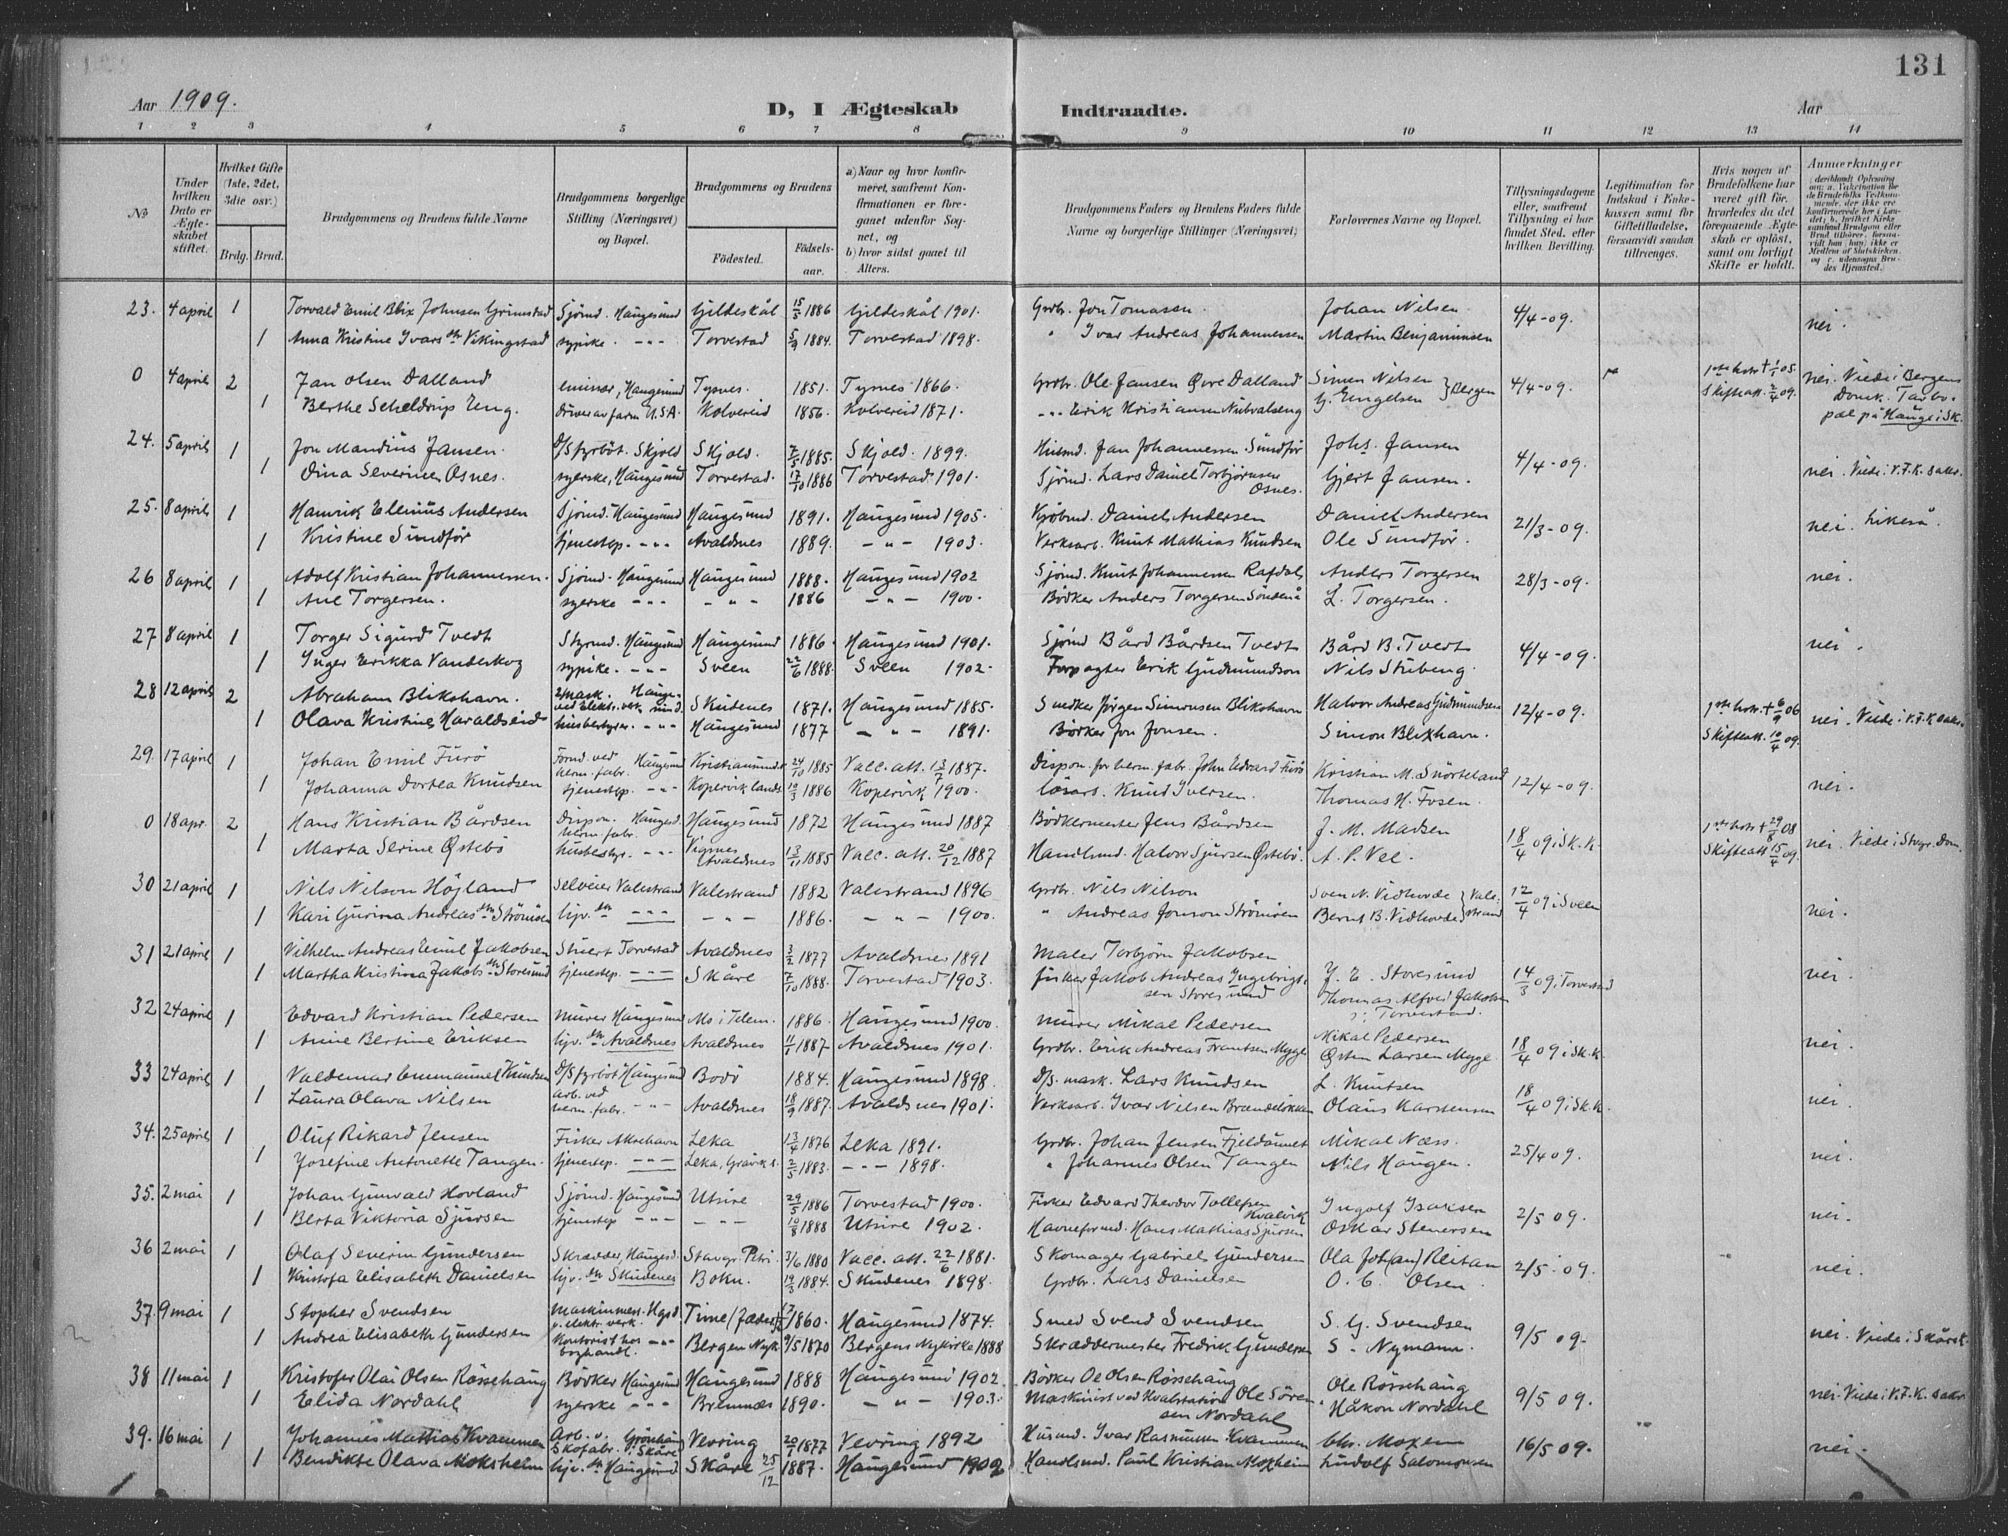 131
Aar 1909. D, I Ægteskab Indtraadte. Aar
1 2 3 4 5 6 7 8 9 10 11 12 13 14
№
Under hvilken Dato er Ægteskabet stiftet.
Hvilket Gifte (1ste, 2det, 3die osv.)
Brdg. Brud.
Brudgommens og Brudens fulde Navne
Brudgommens borgerlige Stilling (Næringsvei) og Bopæl.
Brudgommens og Brudens
Födested. Födselsaar.
a) Naar og hvor konfirmeret, saafremt Konfirmationen er foregaaet udenfor Sognet, og
b) hvor sidst gaaet til Alters.
Brudgommens Faders og Brudens Faders fulde Navne og borgerlige Stillinger (Næringsvei)
Forlovernes Navne og Bopæl.
Tillysningsdagene eller, saafremt Tillysning ei har fundet Sted, efter hvilken Bevilling.
Legitimation for Indskud i Enkekassen samt for Giftetilladelse, forsaavidt saadan tiltrænges.
Hvis nogen af Brudefolkene har været gift för, hvorledes da det foregaaende Ægteskab er oplöst, samt om lovligt Skifte er holdt.
Anmerkninger
23. 4 april 1 Torvald Emil Blix Johnsen Grimstad Sjömd. Haugesund Gildeskål 15/5 1886 Gildeskål 1901. Grdbr. Jon Tomasen. Johan Nilsen. 4/4-09. nei.
1 Anna Kristine Ivarsdtr Vikingstad sypike. -"- Torvestad 5/9 1884. Torvestad 1898. " Ivar Andreas Johannessen Martin Benjaminsen
0 4 april 2 Jan Olsen Dalland emissær, Haugesund Tysnes. 1851. Tysnes 1866. Grdbr. Ole Jansen Øvre Dalland Simen Nilsen } Bergen 4/4-09. nei. Viede i Bergens
1 Berthe Scheldrup Eng. driver av farm U.S.A. Kolvereid 1856. Kolvereid 1871. -"- Erik Kristiansen G. Engelsen Skifteatt. 2/4 09. Domk.
pæl på Hauge i Sk.
24. 5 april 1 Jon Mandius Jansen. D/S fyrböt. Skjold Skjold. 7/5 1885. Skjold. 1899. Husmd. Jan Johannessen Sundför Johs. Jansen 4/4-09. nei. Viede i V.F.K. sakr.
1 Dina Severine Osnes. syerske, Haugesund Torvestad. 17/10 1886 Torvestad. 1901. Sjömd. Lars Daniel Torbjörnsen Osnes. Gjert Jansen.
25. 8 april 1 Hamrik Elenius Andersen Sjömd. Haugesund Haugesund 1891. Haugesund 1905. Kjöbmd. Daniel Andersen Daniel Andersen 21/3-09. nei. Likeså.
1 Kristine Sundför tjenestep. -"- Avaldsnes 1889. -"- 1903. Verksarb. Knut Mathias Knudsen Ole Sundför.
26 8 april 1 Adolf Kristian Johannessen. Sjömd. Haugesund Haugesund 1888. Haugesund 1902 Sjömd. Knut Johannessen Rafdal Anders Torgersen 28/3-09. nei.
1 Ane Torgersen. syerske -"- -"- 1886 -"- 1900. Bödker Anders Torgersen Söndenå L. Torgersen.
27 8 april 1 Torger Sigurd Tvedt Styrmd. Haugesund Haugesund 1886. Haugesund 1901. Sjömd Bård Bårdsen Tvedt Bård B. Tvedt 4/4-09. nei.
1 Inger Erikka Vanderskog sypike. -"- Sveen 22/6 1888. Sveen 1902. Forpagter Erik Gudmundson Nils Stubeng.
28 12 april 2 Abraham Blikshavn. 2/mask. Haugesund. ved Elektr. verk Skudenes 1871. Haugesund 1885. Snedker Jörgen Simonsen Blikshavn Halvor Andreas Gudmundsen 12/4-09. 1ste hstr. + 6/9 06 nei. Viede i V.F.K. sakr.
1 Olava Kristine Haraldseid husbestyrer. -"- Haugesund 1877 -"- 1891. Bödker Jon Jonsen. Simon Blixhavn. Skifteatt. 10/4 09.
29. 17 april 1 Johan Emil Furö Formd. ved herm. fabr. Haugesund Kristiansund. 24/10 1885 Vacc. att. 13/7 1887. Dispon. for herm. fabr. John Edvard Furö Kristian M. Snörteland 12/4-09. nei.
1 Johanna Dortea Knudsen tjenestep. -"- Kopervik lands. 10/3 1886 Kopervik 1900. lösarb. Knud Iversen. Thomas H. Fosen.
0 18 apr. 2 Hans Kristian Bårdsen Dispon. Haugesd. herm. fabr. Haugesund 1872 Haugesund 1887 Bödkermester Jens Bårdsen J. M. Madsen 18/4 09 i Sk. K. 1ste hstr. + 29/8 08 nei. Viede i Stvgr. Dom.
1 Marta Serine Østebö husbestyr. -"- Vignes Avaldsnes 13/11 1885 Vacc. att. 20/12 1887 Handlsmd. Halvor Sjursen Östebö. A. P. Vee. Skifteatt 15/4 09.
30 21 april 1 Nils Nilson Höjland Selveier Valestrand Valestrand 1882 Valestrand 1896 Grdbr. Nils Nilson Sven N. Vidhovde } Valestrand 12/4 09 i Sveen nei.
1 Kari Gurina Andreasdtr Strömöen hjv. dtr -"- -"- 1886. -"- 1900. " Andreas Jonson Strömöen Bernt B. Vidhovde
31 21 april 1 Vilhelm Andreas Emil Jakobsen Stuert Torvestad Avaldsnes 3/2 1877 Avaldsnes 1891 Maler Torbjörn Jakobsen Y. E. Storesund 14/3 09 i Torvestad nei.
1 Martha Kristina Jakobsdtr Storesund tjenestep. -"- Skåre 7/10 1888. Torvestad 1903. fisker Jakob Andreas Ingebrigtsen Storesund Thomas Alfred Jakobsen i Torvestad.
32 24 april 1 Edvard Kristian Pedersen murer Haugesund Mo i Telem. 1886. Haugesund 1900. murer Mikal Pedersen Mikal Pedersen 18/4 09 i Sk. K. nei.
1 Anne Bertine Eriksen hjv. dtr Avaldsnes Avaldsnes 11/1 1887 Avaldsnes 1901. Grdbr. Erik Andreas Frantsen Mygge Østen Larsen Mygge
33 24 april 1 Valdemar Emmanuel Knudsen D/S fyrböt Haugesund Bodö 1884. Haugesund 1898. D/S. mask. Lars Knudsen L. Knutsen 18/4 09 i Sk. K. nei.
1 Laura Olava Nilsen arb. ved herm. fabr. -"- Avaldsnes 18/9 1887. Avaldsnes 1901. Verksarb. Ivar Nilsen Brændelökken Olaus Karstensen
34. 25 april 1 Oluf Rikard Jensen Fisker Akrehavn Leka 13/4 1876 Leka 1891. Grdbr. Johan Jensen Fjeldånnet Mikal Næss. 25/4 09. nei.
1 Josefine Antonette Tangen. tjenestep. -"- Leka, Gravik s. 2/5 1883. -"- 1898. " Johannes Olsen Tangen Nils Haugen.
35. 2 mai 1 Johan Gunvald Hovland Sjömd. Haugesund Utsire 29/5 1886 Torvestad 1900. Fisker Edvard Theodor Tollefsen Kvalvik Ingolf Isaksen 2/5 09. nei.
1 Berta Viktoria Sjursen tjenestep -"- -"- 10/8 1888 Utsire 1902. Havneformd. Hans Mathias Sjursen Oskar Stenersen
36 2 mai 1 Olaf Severin Gundersen Skrædder, Haugesd. Stavgr. Petri. 3/6 1880 Vacc. att. 22/6 1881. Skomager Gabriel Gundersen Ola Joh(an) Reitan 2/5-09. nei.
1 Kristofa Elisabeth Danielsen hjv. dtr Skudenes Bokn. 19/3 1884. Skudenes 1898. Grdbr. Lars Danielsen O. C. Olsen.
37. 9 mai 1 Stopher Svendsen Maskinmest. Hgsd. v. elektr. verk. Time (Jæderen) 1860. Haugesund 1874. Smed Svend Svendsen S. G. Svendsen 9/5 09. nei. Viede i Skårek.
1 Andrea Elisabeth Gundersen Kontorist hos boghandl. -"- Bergen Nyk 9/5 1870 Bergens Nykirke 1888 Skræddermester Fredrik Gundersen S. Nymann.
38 11 mai 1 Kristofer Olai Olsen Rössehaug Bödker Haugesund Haugesund 1888 Haugesund 1902. Bödker Ole Olsen Rössehaug Ole Rössehaug 9/5 09. nei. Viede i V.F.K. sakr
1 Elida Nordahl syerske -"- Bremnæs 1890. -"- 1903. Maskinist ved Kvalstation Ole Sörensen Nordahl Håkon Nordahl
39. 16 mai 1 Johannes Mathias Kvammen Arb. v. Skofabr. Grönhaug i Skåre Vevring 20/1 1877 Vevring 1892 Husmd. Ivar Rasmussen Kvammen Chr. Moxem 16/5 09. nei.
1 Bendikte Olava Moksheim hjv. dtr Haugesund Skåre 25/12 1887. Haugesund 1902 Handlsmd. Paul Kristian Moxheim Ludolf Salomonsen